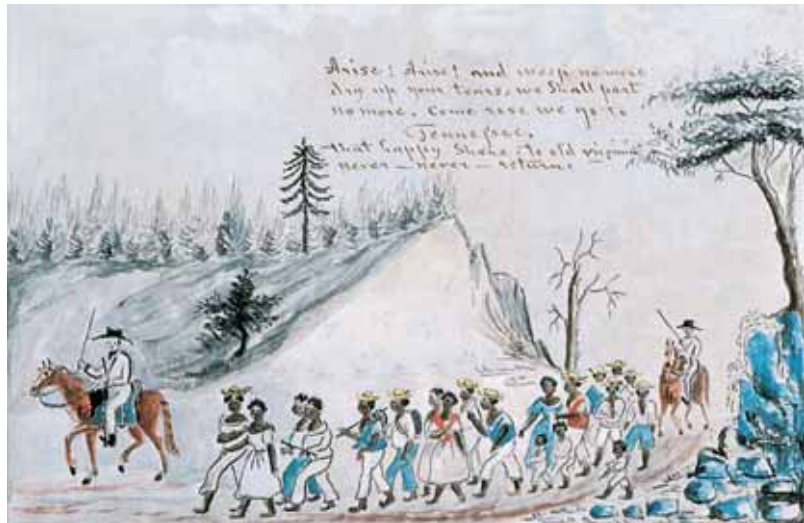 Arise! Arise! and weep no more
dry up your tears, we Shall part
no more. Come rose we go to
Tennessee,
that happy Shore. to old virginia
never — never — return.